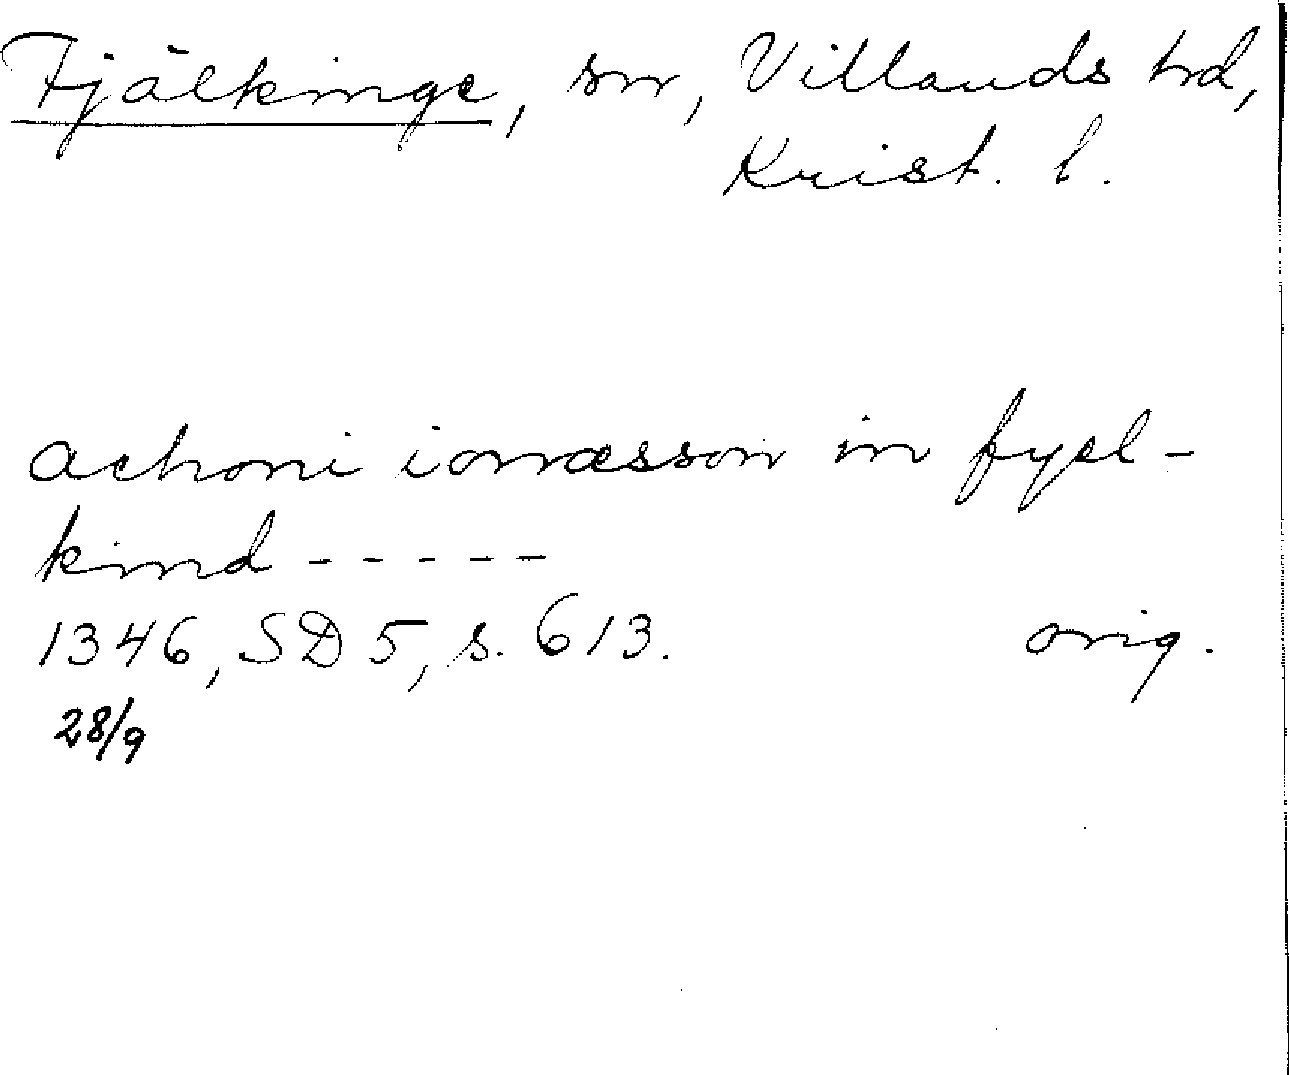 Fjälkinge, sn, Villands hd,
Krist. l.
achoni ionæsson in fyæl-
kind - - - - -
1346, SD 5, s. 613. orig.
28/9